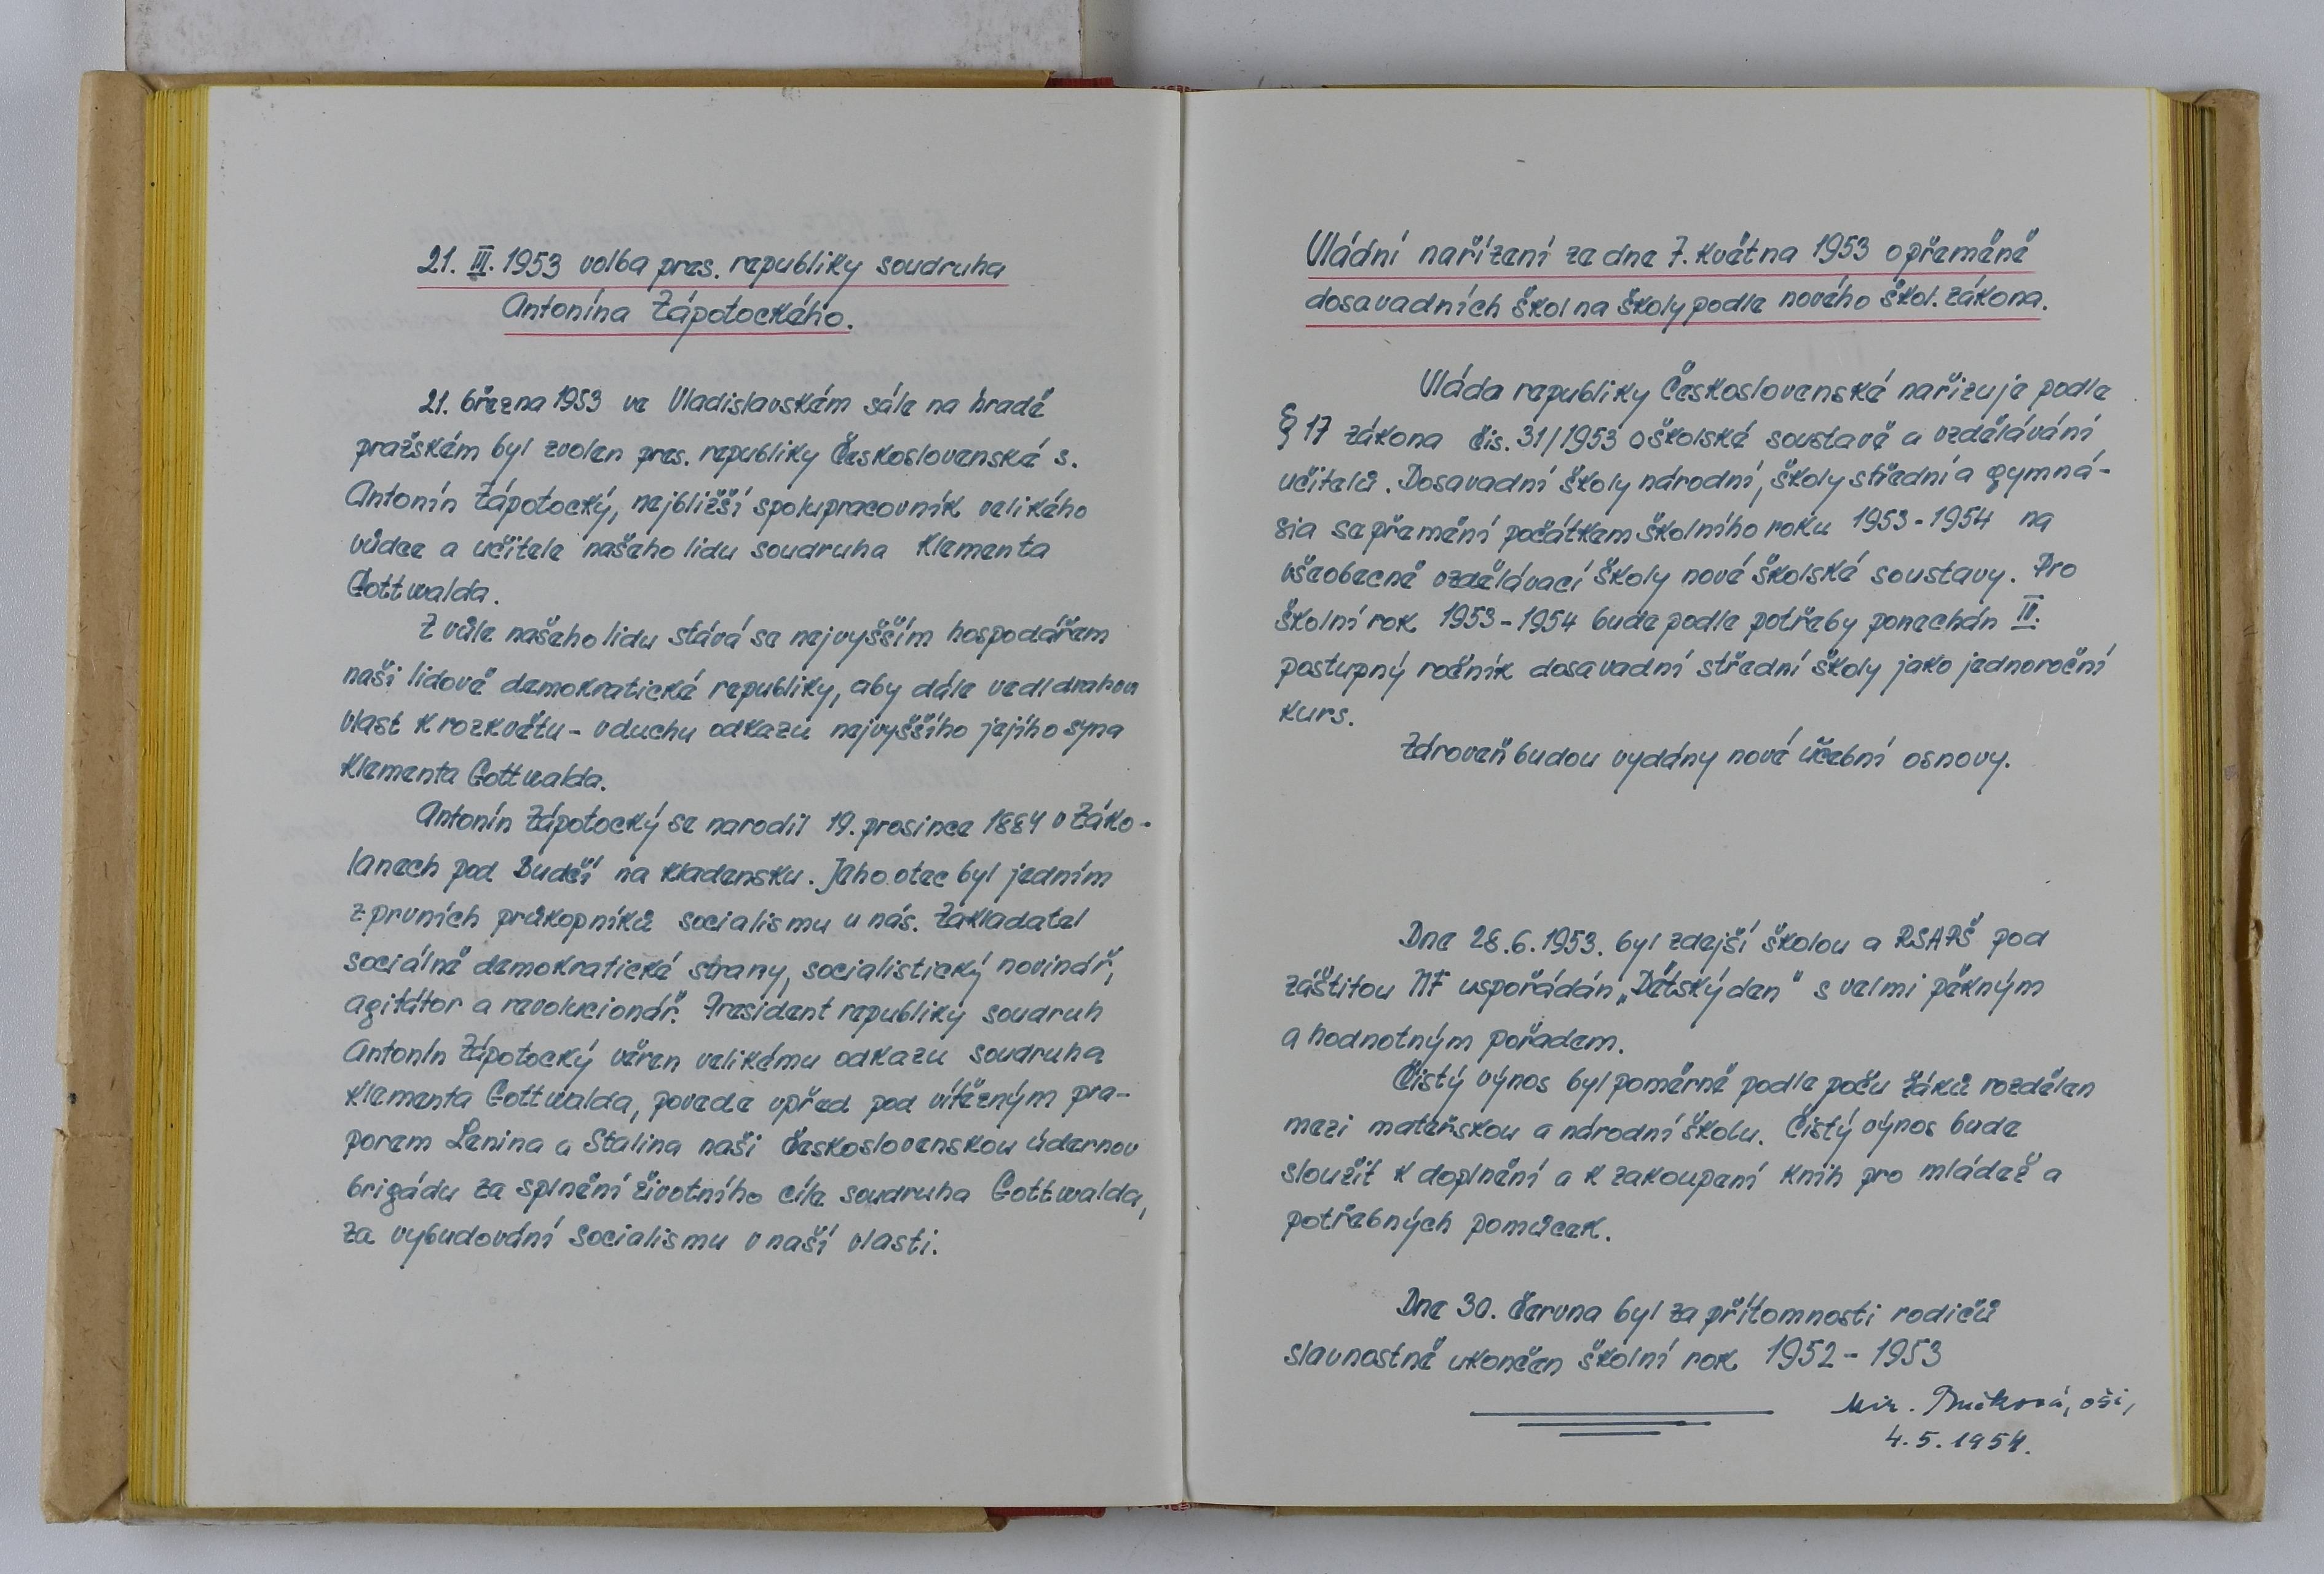 21. III. 1953 volba pres. republiky soudruha
Antonína Zápotockého.
21. března 1953 ve Vladislavském sále na hradě
pražském byl zvolen pres. republiky Československé s.
Antonín Zápotocký, nejbližší spolupracovník velikého
vůdce a učitele našeho lidu soudruha Klementa
Gottwalda.
Z vůle našeho lidu stává se nejvyšším hospodářem
naší lidově demokratické republiky, aby dále vedl drahou
vlast k rozkvětu - v duchu odkazu nejvyššího jejího syna
Klementa Gottwalda.
Antonín Zápotocký se narodil 19. prosince 1884 v Záko-
lanech pod Budčí na Kladensku. Jeho otec byl jedním
z prvních průkopníků socialismu u nás. Zakladatel
sociálně demokratické strany, socialistický novinář,
agitátor a revolucionář. President republiky soudruh
Antonín Zápotocký věren velikému odkazu soudruha
Klementa Gottwalda, povede vpřed pod vítězným pra-
porem Lenina a Stalina naši československou údernou
brigádu za splnění životního cíle soudruha Gottwalda,
za vybudování socialismu v naší vlasti.
Vládní nařízení ze dne 7. května 1953 o přeměně
dosavadních škol na školy podle nového škol. zákona.
Vláda republiky Československé nařizuje podle
§ 17 zákona čis. 31/1953 o školské soustavě a vzdělávání
učitelů. Dosavadní školy národní, školy střední a gymná-
sia se přemění počátkem školního roku 1953-1954 na
všeobecně vzdělávací školy nové školské soustavy. Pro
školní rok 1953-1954 bude podle potřeby ponechán II.
postupný ročník dosavadní střední školy jako jednoroční
kurs.
Zároveň budou vydány nové učební osnovy.
Dne 28.6.1953. byl zdejší školou a RSAPŠ pod
záštitou NF uspořádán „Dětský den" s velmi pěkným
a hodnotným pořadem.
Čistý výnos byl poměrně podle poču žáků rozdělen
mezi mateřskou a národní školu. Čistý výnos bude
sloužit k doplnění a k zakoupení knih pro mládež a
potřebných pomůcek.
Dne 30. června byl za přítomnosti rodičů
slavnostně ukončen školní rok 1952-1953
Mir.
4.5.1954.